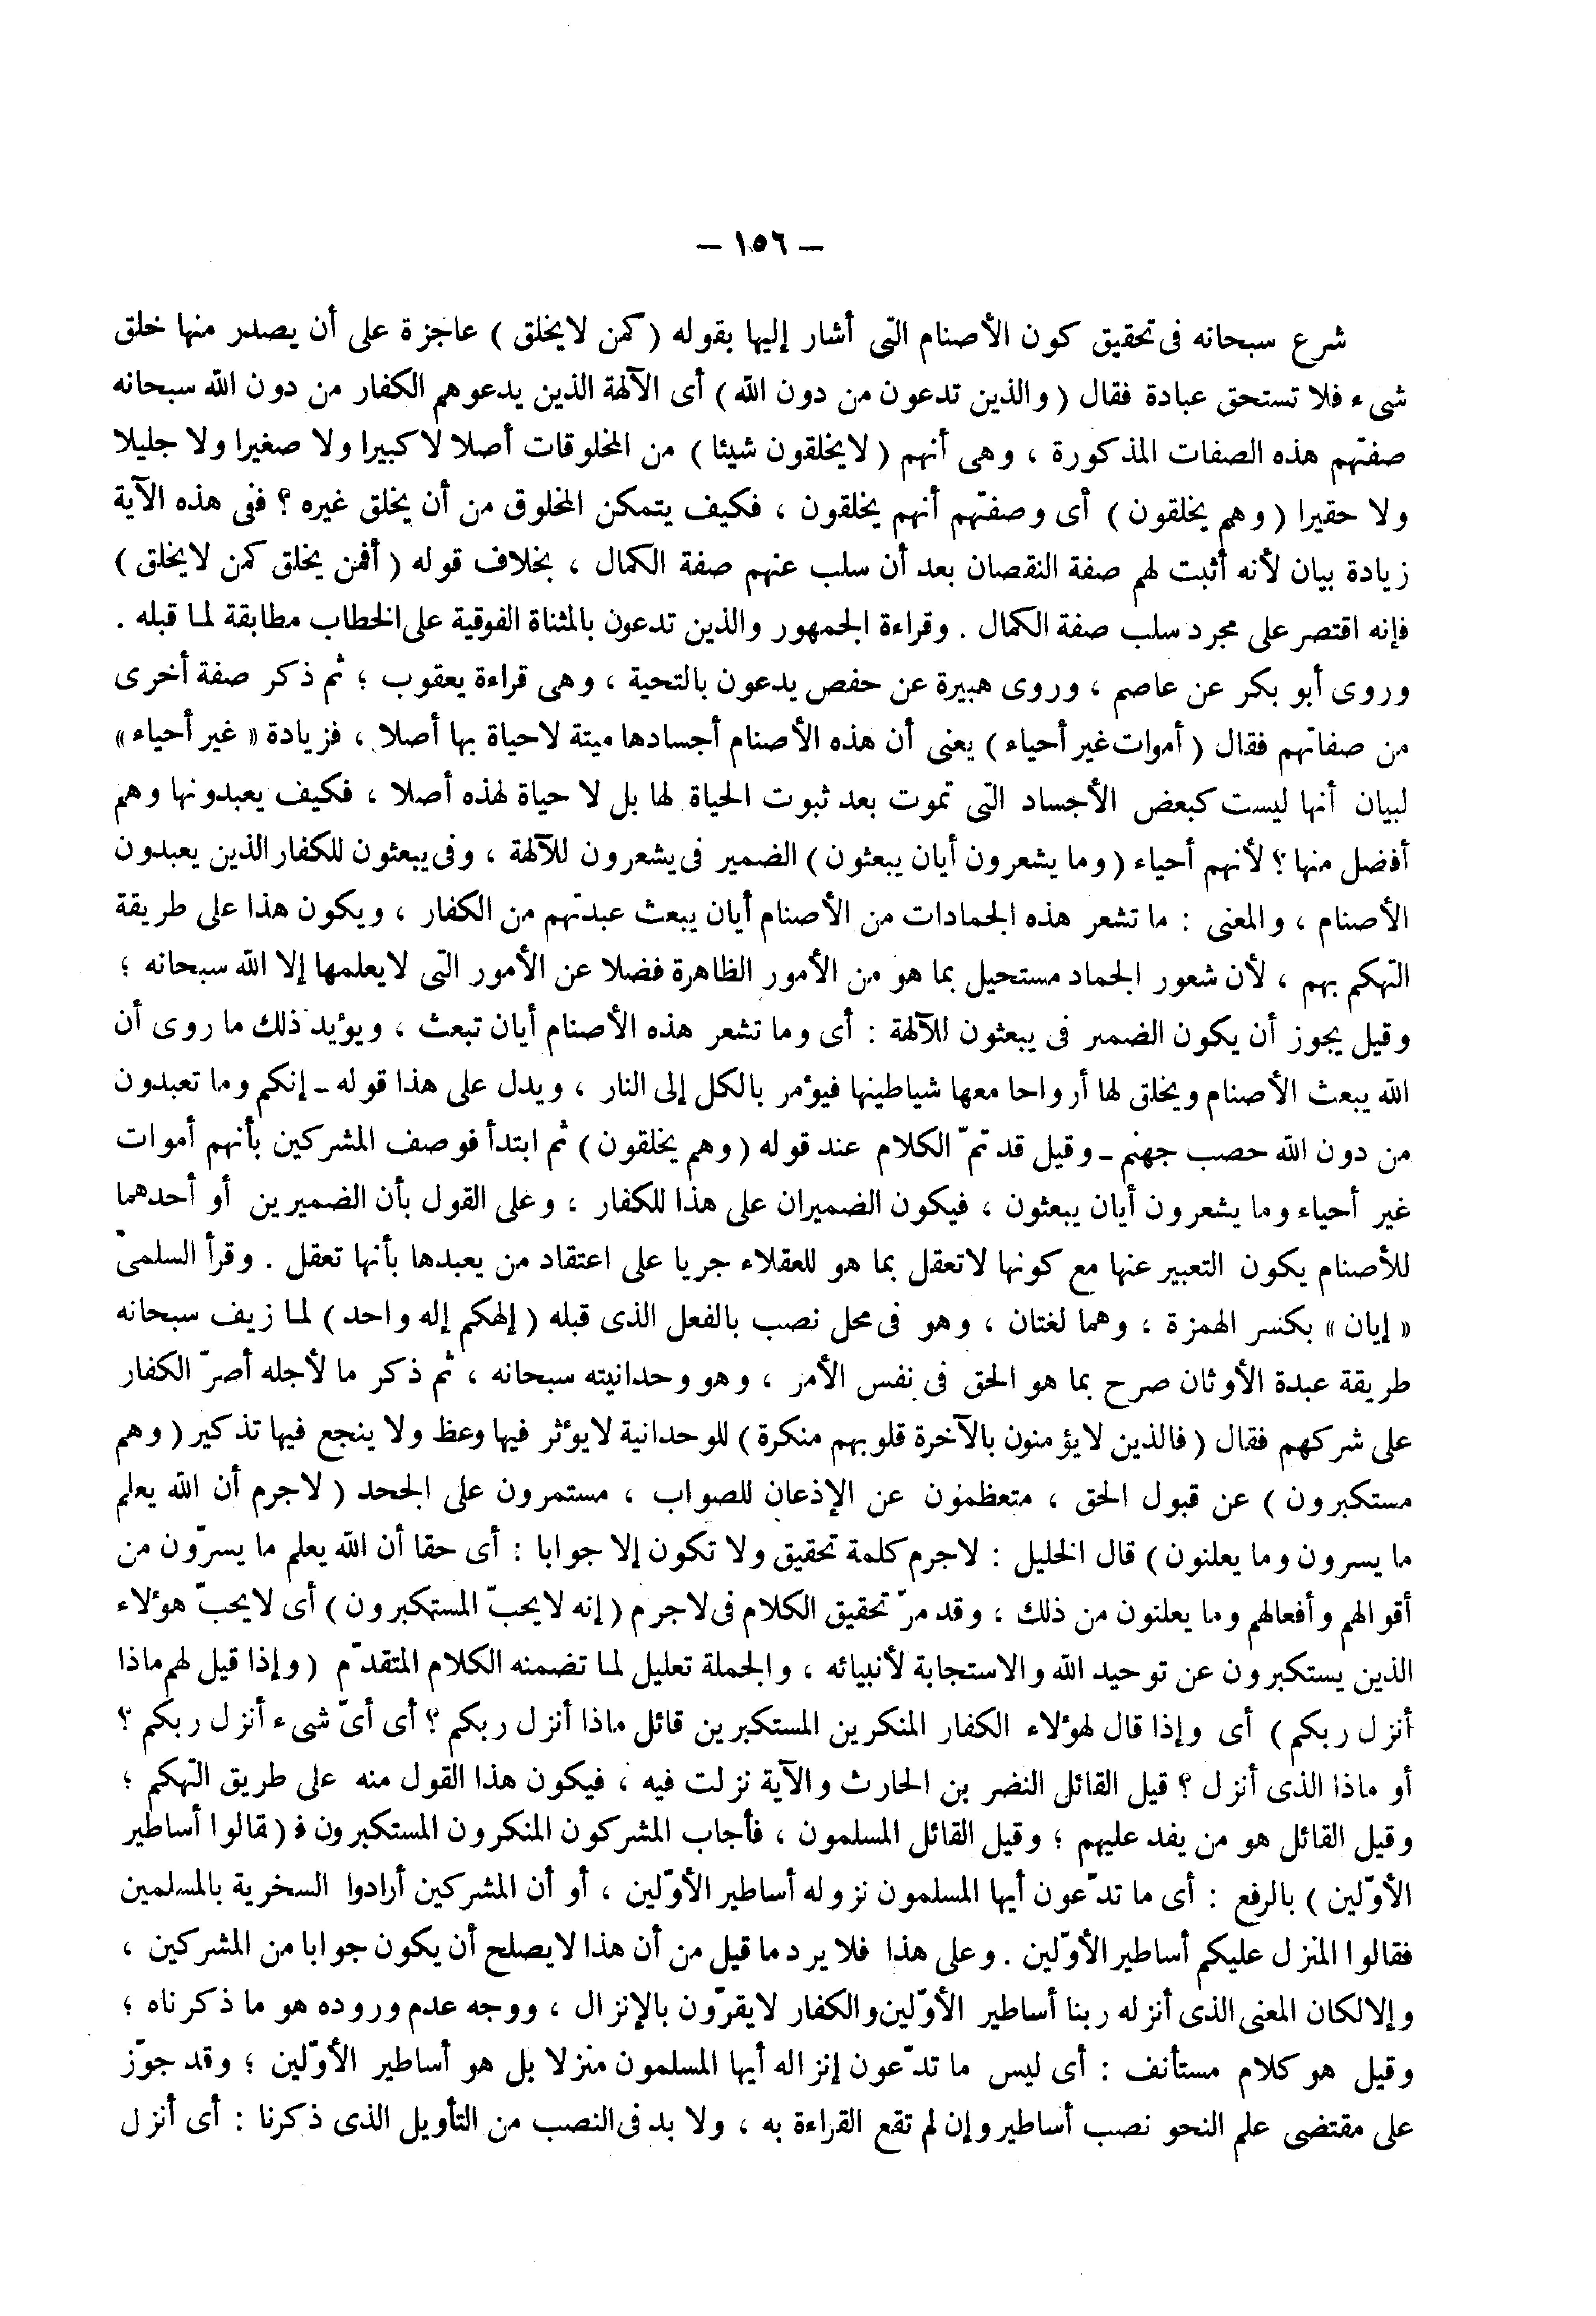 — ١٥٦ —
شرع سبحانه فى تحقيق كون الأصنام التى أشار إليها بقوله ( كمن لايخلق ) عاجزة على أن يصدر منها خلق
شىء فلا تستحق عبادة فقال ( والذين تدعون من دون الله ) أى الآلهة الذين يدعوهم الكفار من دون الله سبحانه
صفتهم هذه الصفات المذكورة ، وهى أنهم ( لايخلقون شيئا ) من المخلوقات أصلا لاكبيرا ولا صغيرا ولا جليلا
ولا حقيرا ( وهم يخلقون ) أى وصفتهم أنهم يخلقون ، فكيف يتمكن المخلوق من أن يخلق غيره ؟ ففى هذه الآية
زيادة بيان لأنه أثبت لهم صفة النقصان بعد أن سلب عنهم صفة الكمال ، بخلاف قوله ( أفمن يخلق كمن لايخلق )
فإنه اقتصر على مجرد سلب صفة الكمال . وقراءة الجمهور والذين تدعون بالمثناة الفوقية على الخطاب مطابقة لما قبله .
وروى أبو بكر عن عاصم ، وروى هبيرة عن حفص يدعون بالتحية ، وهى قراءة يعقوب ؛ ثم ذكر صفة أخرى
من صفاتهم فقال ( أموات غير أحياء ) يعنى أن هذه الأصنام أجسادها ميتة لاحياة بها أصلا ، فزيادة « غير أحياء »
لبيان أنها ليست كبعض الأجساد التى تموت بعد ثبوت الحياة لها بل لا حياة لهذه أصلا ، فكيف يعبدونها وهم
أفضل منها ؟ لأنهم أحياء ( وما يشعرون أيان يبعثون ) الضمير فى يشعرون للآلهة ، وفى يبعثون للكفار الذين يعبدون
الأصنام ، والمعنى : ما تشعر هذه الجمادات من الأصنام أيان يبعث عبدتهم من الكفار ، ويكون هذا على طريقة
التهكم بهم ، لأن شعور الجماد مستحيل بما هو من الأمور الظاهرة فضلا عن الأمور التى لايعلمها إلا الله سبحانه ؛
وقيل يجوز أن يكون الضمير فى يبعثون للآلهة : أى وما تشعر هذه الأصنام أيان تبعث ، ويؤيد ذلك ما روى أن
الله يبعث الأصنام ويخلق لها أرواحا معها شياطينها فيؤمر بالكل إلى النار ، ويدل على هذا قوله ـ إنكم وما تعبدون
من دون الله حصب جهنم ـ وقيل قد تمّ الكلام عند قوله ( وهم يخلقون ) ثم ابتدأ فوصف المشركين بأنهم أموات
غير أحياء وما يشعرون أيان يبعثون ، فيكون الضميران على هذا للكفار ، وعلى القول بأن الضميرين أو أحدهما
للأصنام يكون التعبير عنها مع كونها لاتعقل بما هو للعقلاء جريا على اعتقاد من يعبدها بأنها تعقل . وقرأ السلمىّ
« إيان » بكسر الهمزة ، وهما لغتان ، وهو فى محل نصب بالفعل الذى قبله ( إلهكم إله واحد ) لما زيف سبحانه
طريقة عبدة الأوثان صرح بما هو الحق فى نفس الأمر ، وهو وحدانيته سبحانه ، ثم ذكر ما لأجله أصرّ الكفار
على شركهم فقال ( فالذين لايؤمنون بالآخرة قلوبهم منكرة ) للوحدانية لايؤثر فيها وعظ ولا ينجع فيها تذكير ( وهم
مستكبرون ) عن قبول الحق ، متعظمون عن الإذعان للصواب ، مستمرون على الجحد ( لاجرم أن الله يعلم
ما يسرون وما يعلنون ) قال الخليل : لاجرم كلمة تحقيق ولا تكون إلا جوابا : أى حقا أن الله يعلم ما يسرّون من
أقوالهم وأفعالهم وما يعلنون من ذلك ، وقد مرّ تحقيق الكلام فى لاجرم ( إنه لايحبّ المستكبرون ) أى لايحبّ هؤلاء
الذين يستكبرون عن توحيد الله والاستجابة لأنبيائه ، والجملة تعليل لما تضمنه الكلام المتقدّم ( وإذا قيل لهم ماذا
أنزل ربكم ) أى وإذا قال لهؤلاء الكفار المنكرين المستكبرين قائل ماذا أنزل ربكم ؟ أى أىّ شىء أنزل ربكم ؟
أو ماذا الذى أنزل ؟ قيل القائل النضر بن الحارث والآية نزلت فيه ، فيكون هذا القول منه على طريق التهكم ؛
وقيل القائل هو من يفد عليهم ؛ وقيل القائل المسلمون ، فأجاب المشركون المنكرون المستكبرون فـ ( قالوا أساطير
الأوّلين ) بالرفع : أى ما تدّعون أيها المسلمون نزوله أساطير الأوّلين ، أو أن المشركين أرادوا السخرية بالمسلمين
فقالوا المنزل عليكم أساطير الأوّلين . وعلى هذا فلا يرد ما قيل من أن هذا لايصلح أن يكون جوابا من المشركين ،
وإلا لكان المعنى الذى أنزله ربنا أساطير الأوّلين والكفار لايقرّون بالإنزال ، ووجه عدم وروده هو ما ذكرناه ؛
وقيل هو كلام مستأنف : أى ليس ما تدّعون إنزاله أيها المسلمون منزلا بل هو أساطير الأوّلين ؛ وقد جوّز
على مقتضى علم النحو نصب أساطير وإن لم تقع القراءة به ، ولا بد فى النصب من التأويل الذى ذكرنا : أى أنزل